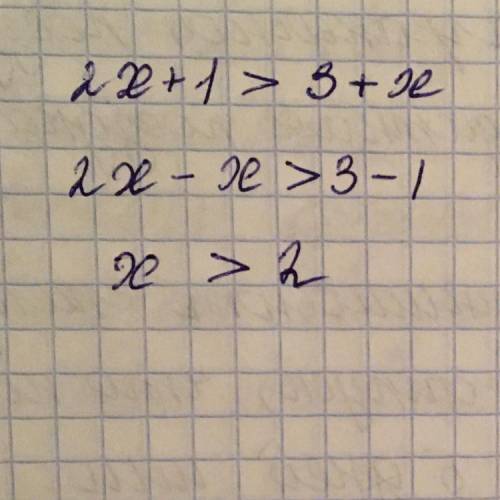 2x+1 > 3+x
2x - x > 3-1
x > 2